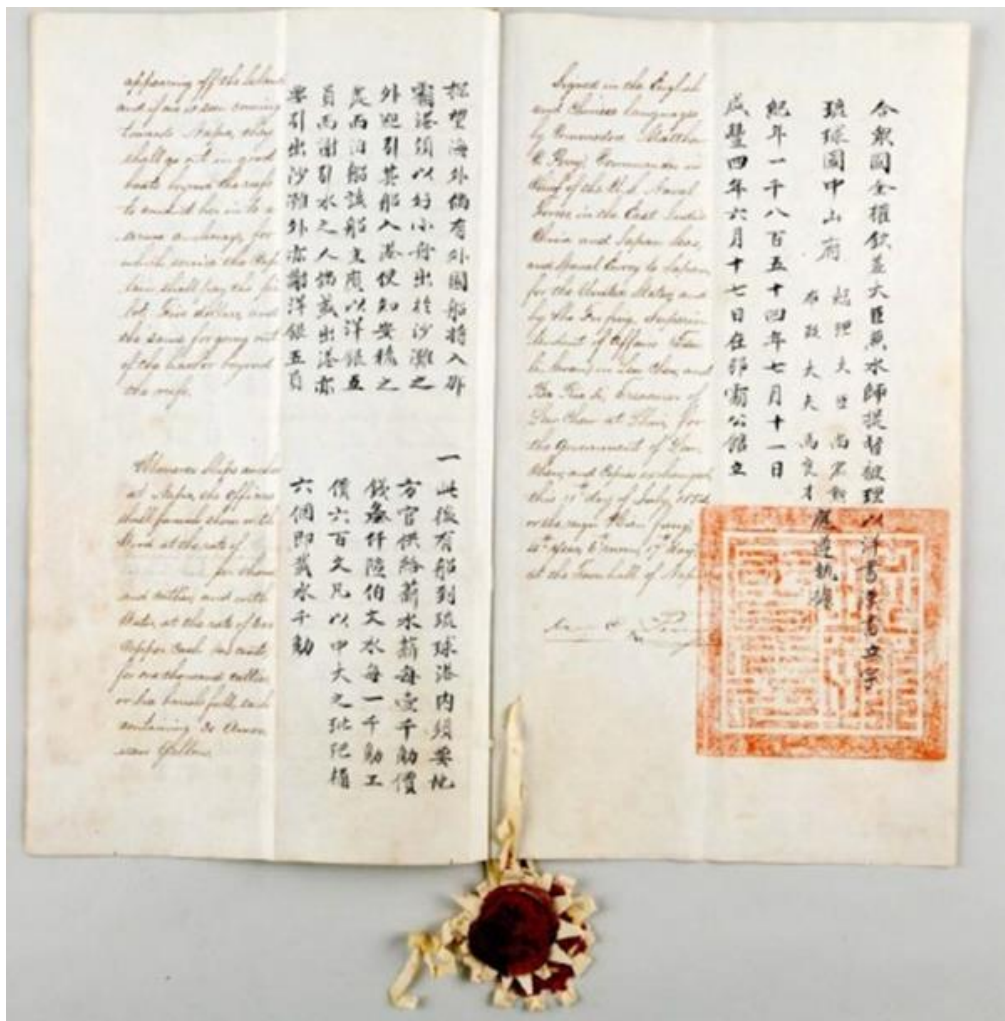 appearing off the Island
and if one is seen coming
towards Napa, they
shall go out in good
boats beyond the reefs
to conduct her in to a
secure anchorage, for
which service the Cap-
tain shall pay the pi-
lot Five dollars, and
the same for going out
of the harbor beyond
the reefs.
探望海外倘有外國船將入那
霸港須以好小舟出於沙灘之
外迎引其船入港使知安穩之
處而泊船該船主應以洋銀五
員而謝引水之人倘或出港亦
要引出沙灘外亦謝洋銀五員
Whenever Ships anchor
at Napa, the officers
shall furnish them with
Wood at the rate of
per thous
and catties; and with
Water, at the rate of 600
Copper Cash
for one thousand catties,
or Six barrels full, each
containing 30 Ameri-
can Gallons.
一此後有船到琉球港內須要地
方官供給薪水薪每壹千觔價
錢叁仟陸伯文水每一千觔工
價六百文凡以中大之琵琶桶
六個即載水千觔
Signed in the English
and Chinese languages
by Commodore Matthew
C. Perry Commander in
Chief of the U.S. Naval
Forces in the East India
China and Japan Seas,
and Special Envoy to Japan,
for the United States; and
by Sho Fu fing, Superin-
tendent of Affairs
in Lew Chew, and
Ba Rio si, Treasurer of
Lew Chew at Shui, for
the Government of Lew
Chew, and Copies exchanged,
this 11th day of July, 1854
or the reign Hien fung,
4th Year, 6th moon, 17th day,
at the Town hall of Napa.
合衆國全權欽差大臣兼水師提督被理以洋書漢書立字
琉球國中山府 總理大臣尚宏勳
布政大夫馬良才 應遵執據
紀年一千八百五十四年七月十一日
咸豐四年六月十七日在那霸公館立